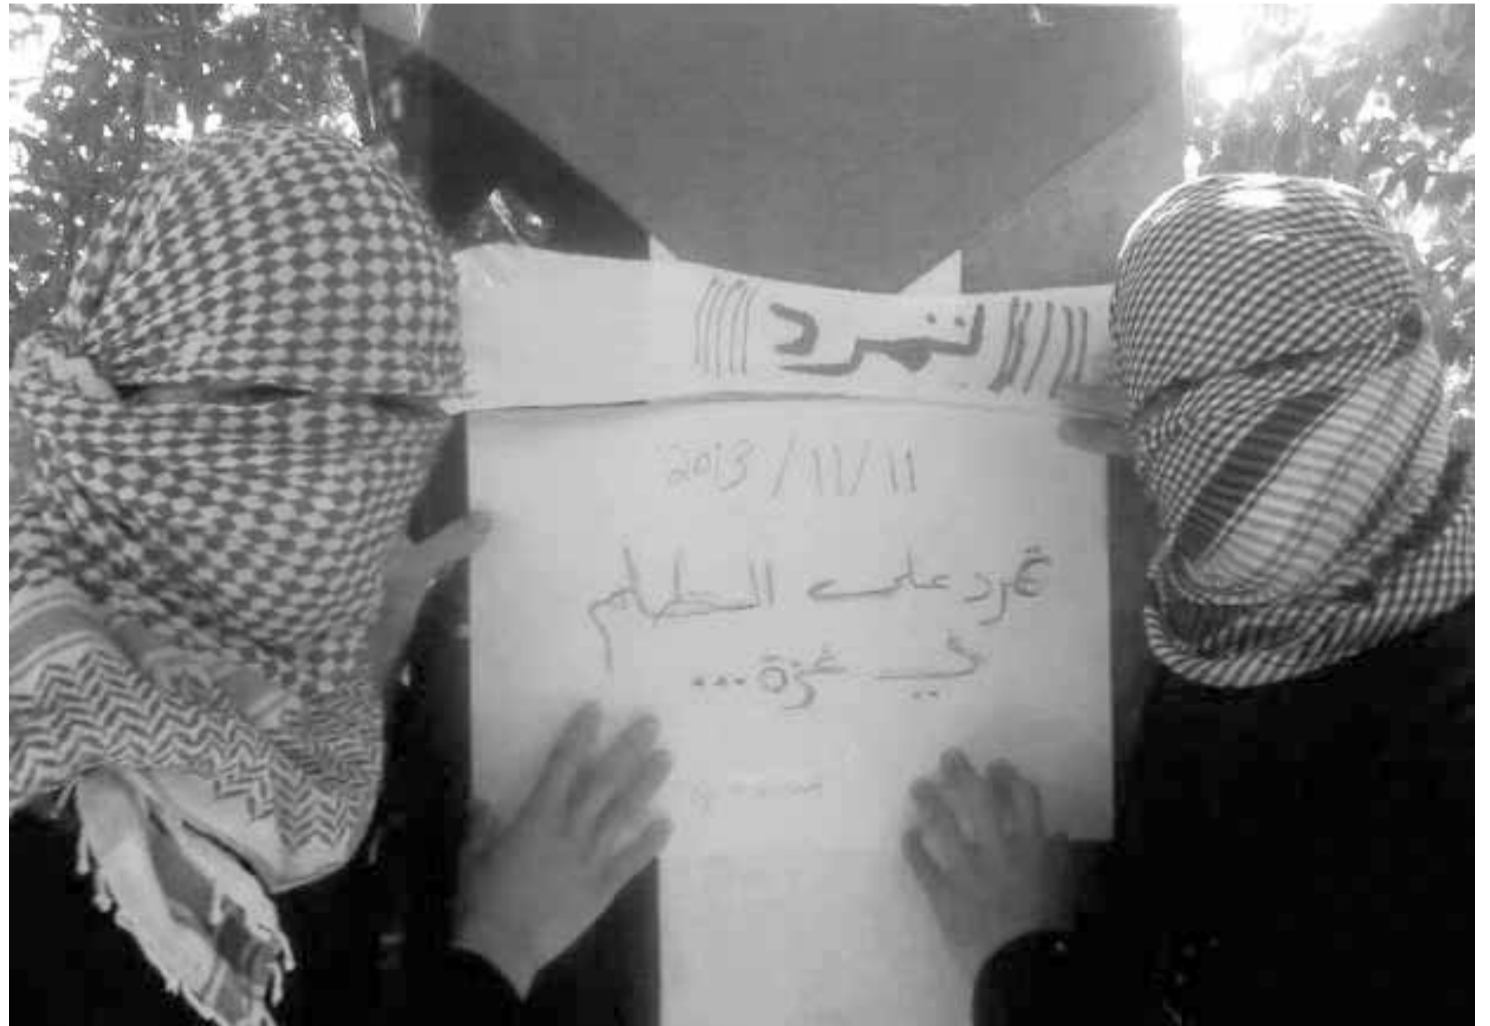 تمرد
2013/11/11
تمرد على الظلم
في غزة...